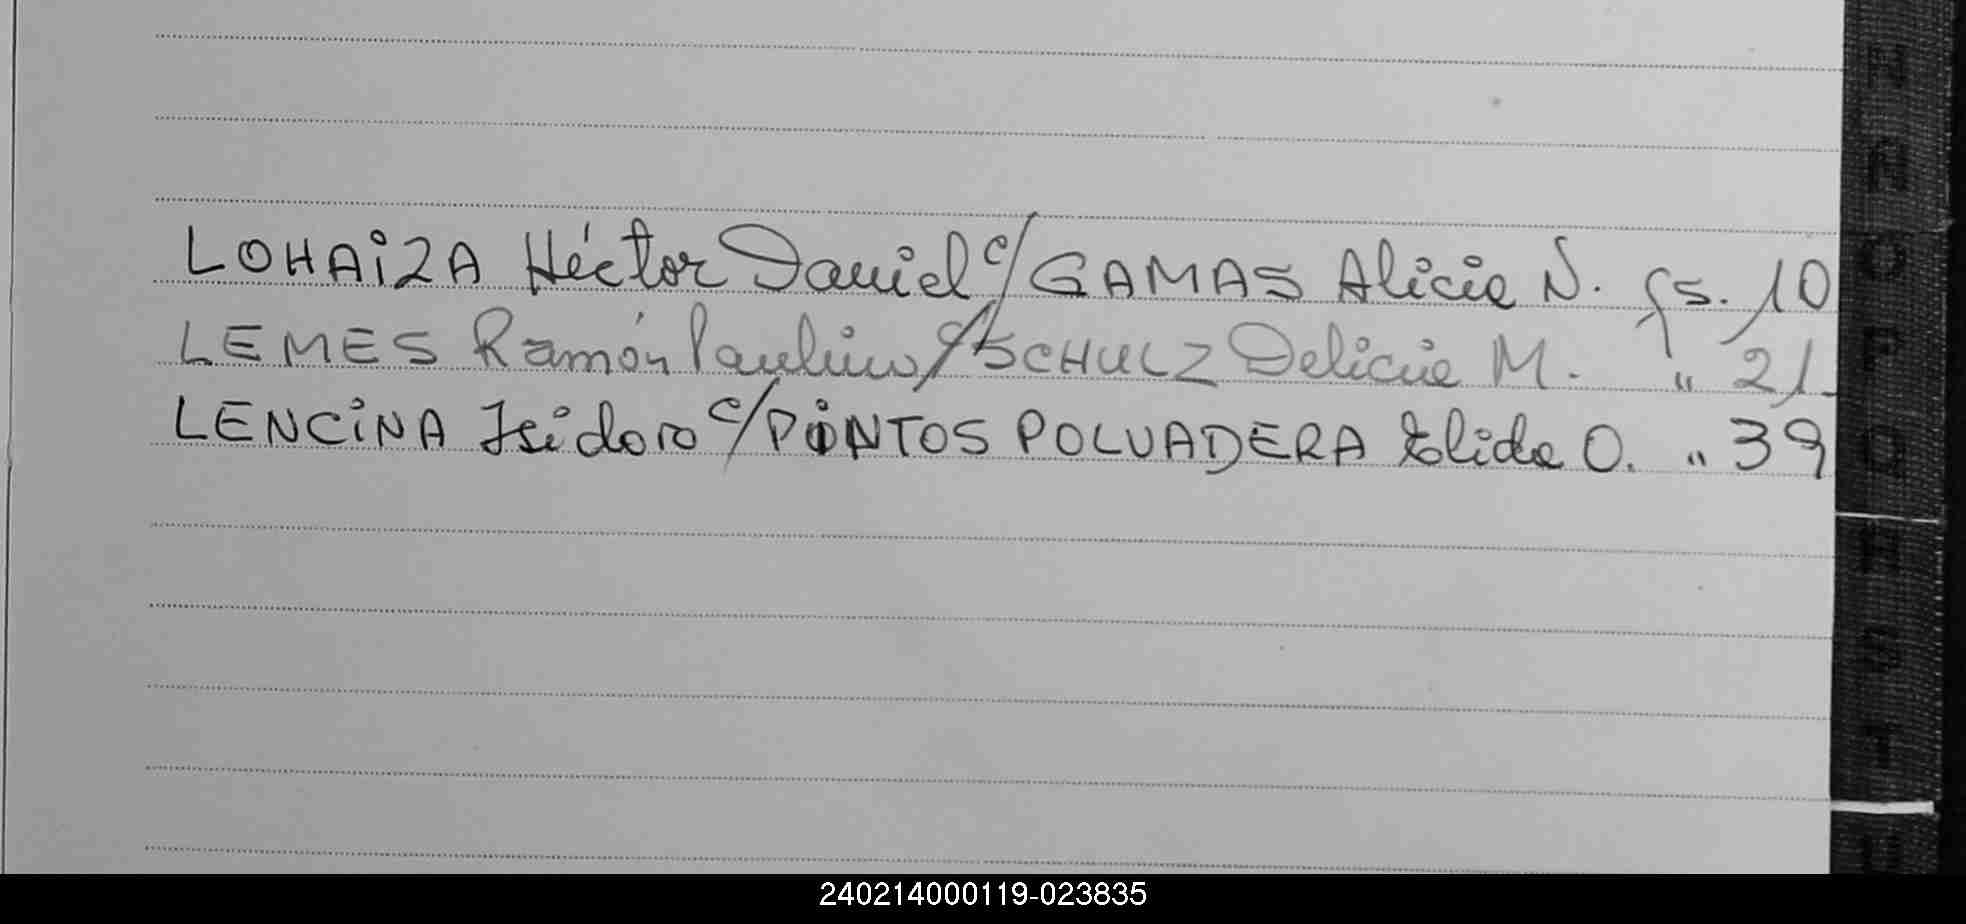 LOHAiZA Héctor Daniel c/ GAMAS Alicia N. fs. 10
LEMES Ramón Paulino c/ SCHULZ Delicia M. " 21
LENCiNA Isidoro c/ PiNTOS POLVADERA Elida O. " 39
240214000119-023835